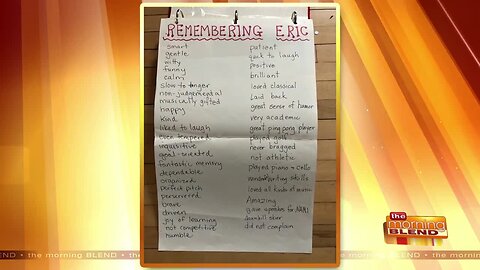 REMEMBERING ERIC
smart
gentle
witty
funny
calm
slow to anger
non-judgemental
musically gifted
happy
kind
liked to laugh
even tempered
inquisitive
goal-oriented
fantastic memory
dependable
organized
perfect pitch
persevered
brave
driven
joy of learning
not competitive
humble
patient
quick to laugh
positive
brilliant
loved classical
laid back
great sense of humor
very academic
great ping pong player
played golf
never bragged
not athletic
played piano + cello
writing skills
loved all kinds of music
Amazing
speeches for NAMI
did not complain
the
morning
BLEND
BLEND • the morning BLEND • the morning
the morning BLEND